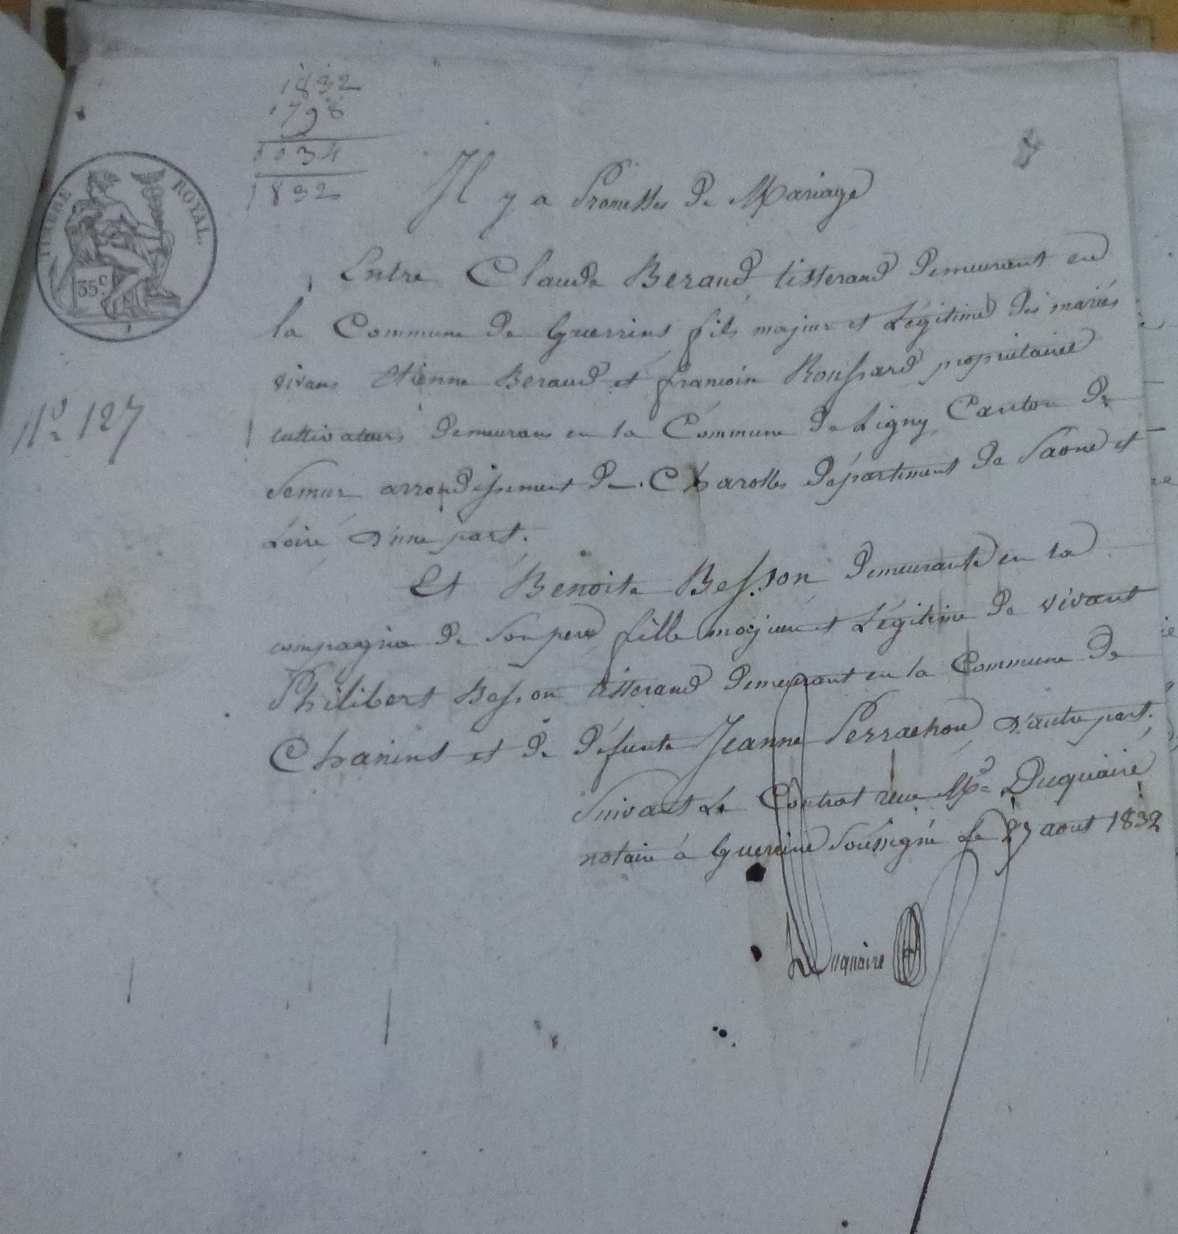 1832
1798
0034
1832
TIMBRE ROYAL.
35c
N° 127
Il y a Promesses de Mariage
Entre Claude Beraud tisserand demeurant en
la Commune de Guerrins fils majeur et Légitime des mariés
vivans Etienne Beraud et francoise Boussard propriétaires
cultivateurs demeurans en la Commune de Ligny Canton de
Semur arrondissement de Charolles département de Saone et
Loire d'une part.
Et Benoite Besson demeurante en la
compagnie de son pere fille majeure et Légitime de vivant
Philibert Besson tisserand demeurant en la Commune de
Chanins et de défunte Jeanne Perrachon d'autre part.
Suivant Le Contrat recu Me Duquaire
notaire à Guerrins Soussigné Le 27 aout 1832
Duquaire